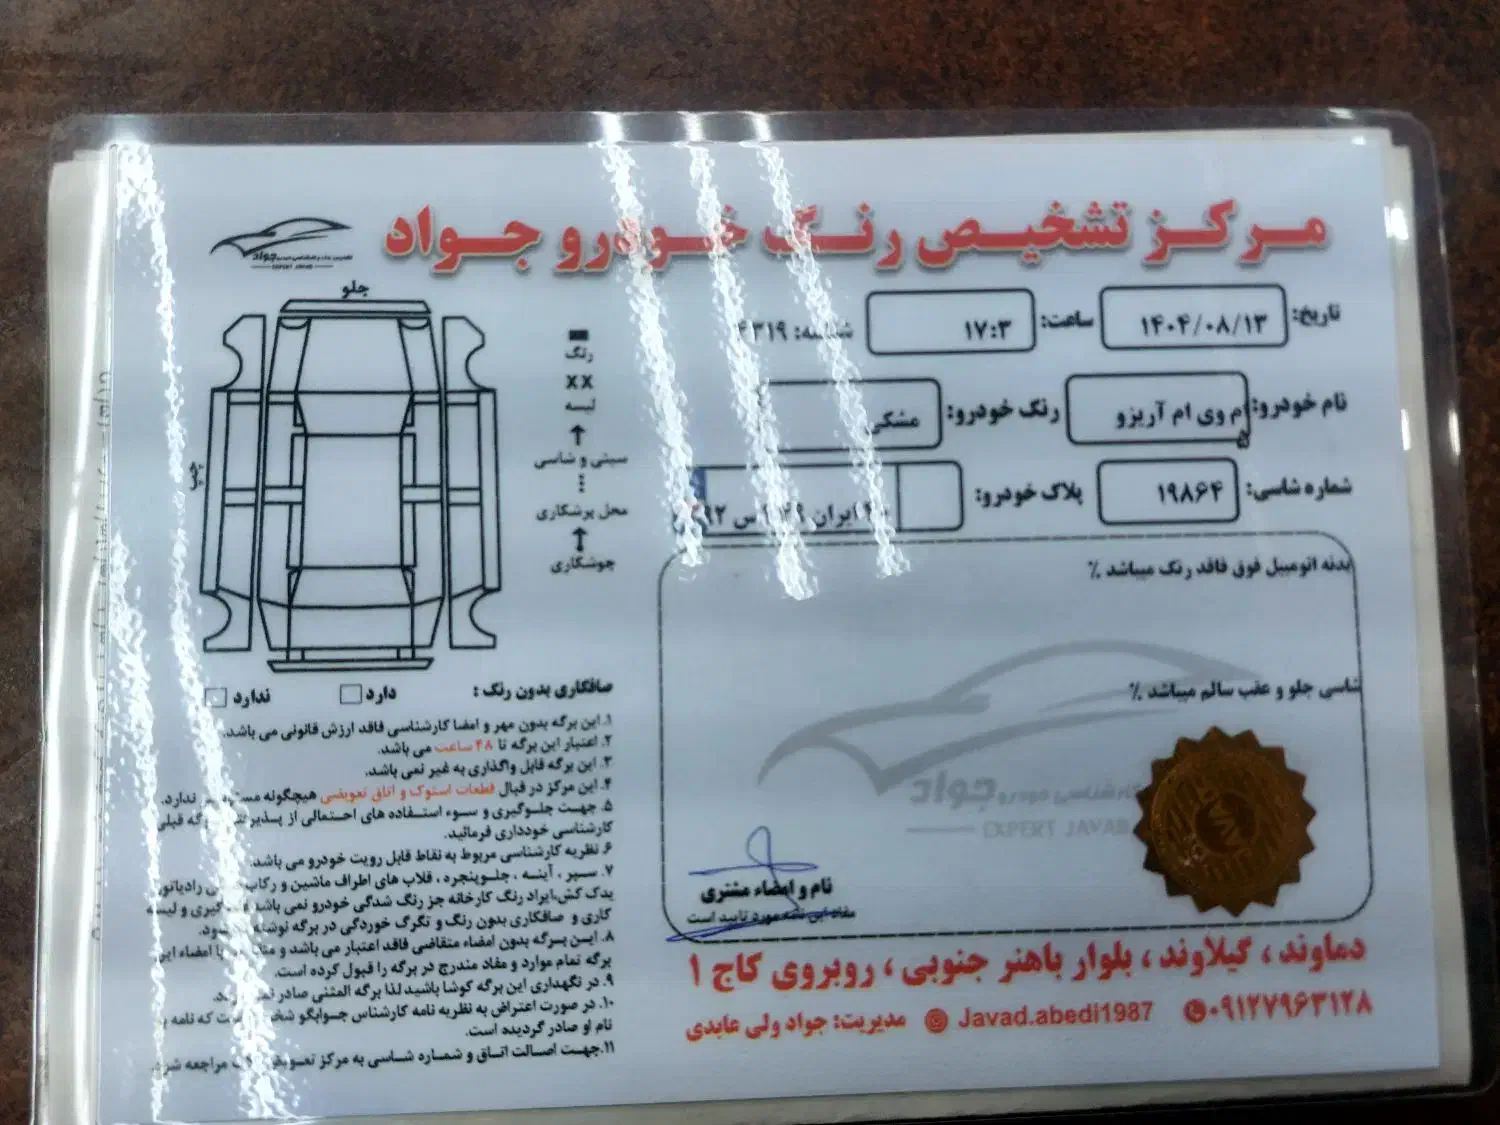 مرکز تشخیص رنگ خودرو جواد
جواد
EXPERT JAVAD
تاریخ: ۱۴۰۴/۰۸/۱۳
ساعت: ۱۷:۳
شناسه: ۴۳۱۹
نام خودرو: ام وی ام آریزو ۵
رنگ خودرو: مشکی
شماره شاسی: ۱۹۸۶۴
پلاک خودرو: ایران
بدنه اتومبیل فوق فاقد رنگ میباشد ٪
شاسی جلو و عقب سالم میباشد ٪
کارشناسی خودرو جواد
EXPERT JAVAD
نام و امضاء مشتری
مفاد این نامه مورد تایید است
جلو
چپ
رنگ
XX
لیسه
سینی و شاسی
محل پرشکاری
جوشکاری
صافکاری بدون رنگ : دارد ندارد
۱. این برگه بدون مهر و امضا کارشناسی فاقد ارزش قانونی می باشد.
۲. اعتبار این برگه تا ۴۸ ساعت می باشد.
۳. این برگه قابل واگذاری به غیر نمی باشد.
۴. این مرکز در قبال قطعات استوک و اتاق تعویضی هیچگونه ندارد.
۵. جهت جلوگیری و سوء استفاده های احتمالی از پذیرفتن برگه قبلی
کارشناسی خودداری فرمائید.
۶. نظریه کارشناسی مربوط به نقاط قابل رویت خودرو می باشد.
۷. سپر ، آینه ، جلوپنجره ، قلاب های اطراف ماشین و رکاب رادیاتور
یدک کش،ایراد رنگ کارخانه جز رنگ شدگی خودرو نمی باشد و لیسه
کاری و صافکاری بدون رنگ و تگرگ خوردگی در برگه نوشته
۸. این برگه بدون امضاء متقاضی فاقد اعتبار می باشد و با امضاء این
برگه تمام موارد و مفاد مندرج در برگه را قبول کرده است.
۹. در نگهداری این برگه کوشا باشید لذا برگه المثنی صادر
۱۰. در صورت اعتراض به نظریه نامه کارشناس جوابگو است که نامه به
نام او صادر گردیده است.
۱۱.جهت اصالت اتاق و شماره شاسی به مرکز مراجعه شود.
دماوند ، گیلاوند ، بلوار باهنر جنوبی ، روبروی کاج ۱
۰۹۱۲۷۹۶۳۱۲۸ Javad.abedi1987 مدیریت: جواد ولی عابدی